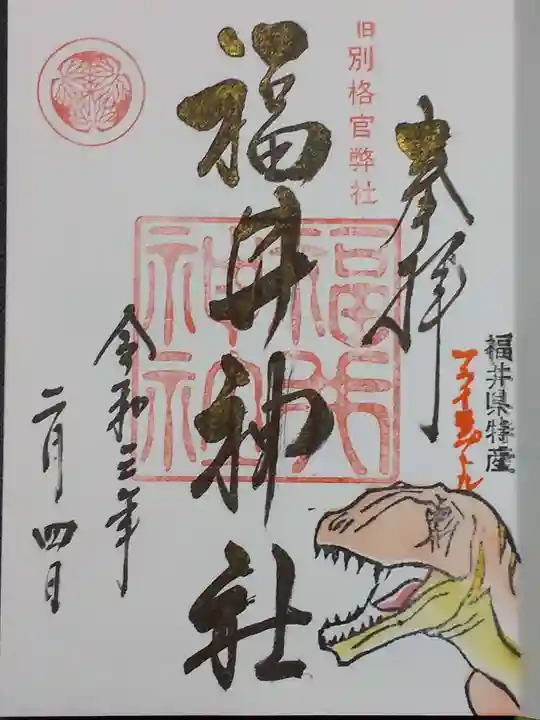 奉拝
福井県特産
フクイラプトル
旧別格官幣社
福井神社
福井
神社
令和三年
二月四日